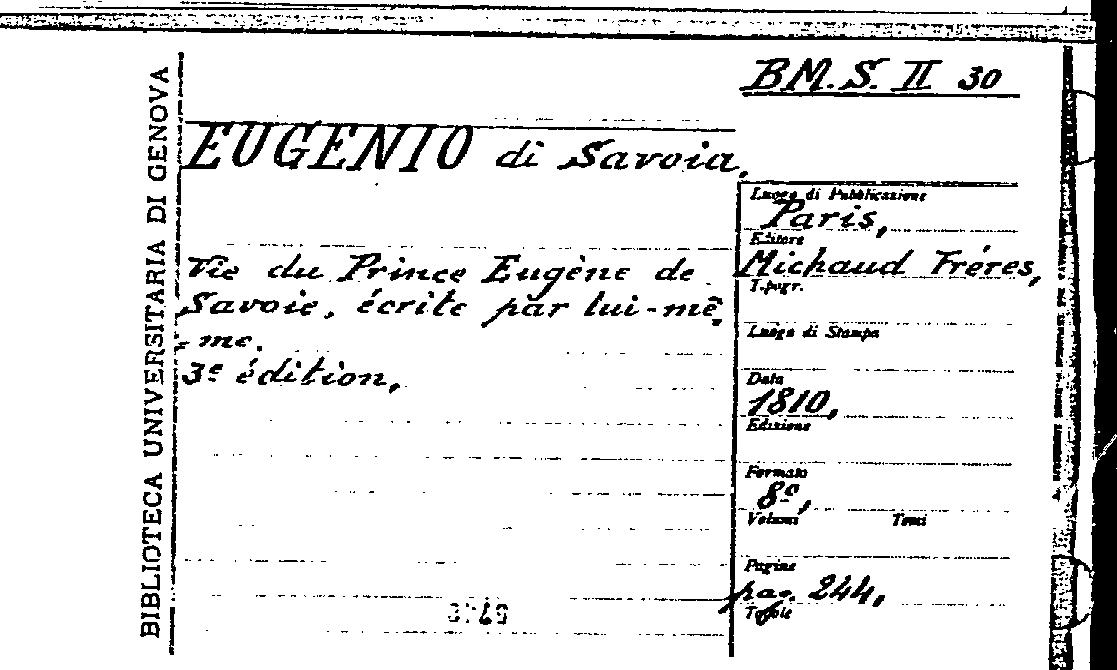 BIBLIOTECA UNIVERSITARIA DI GENOVA
BM. S. II 30
EUGENIO di Savoia.
Vie du Prince Eugène de
Savoie, écrite par lui-mê-
-me.
3e édition,
Luogo di Pubblicazione
Paris,
Editore
Michaud Fréres,
Tipogr.
Luogo di Stampa
Data
1810,
Edizione
Formato
8º,
Volumi Tomi
Pagine
pag. 244,
Tavole